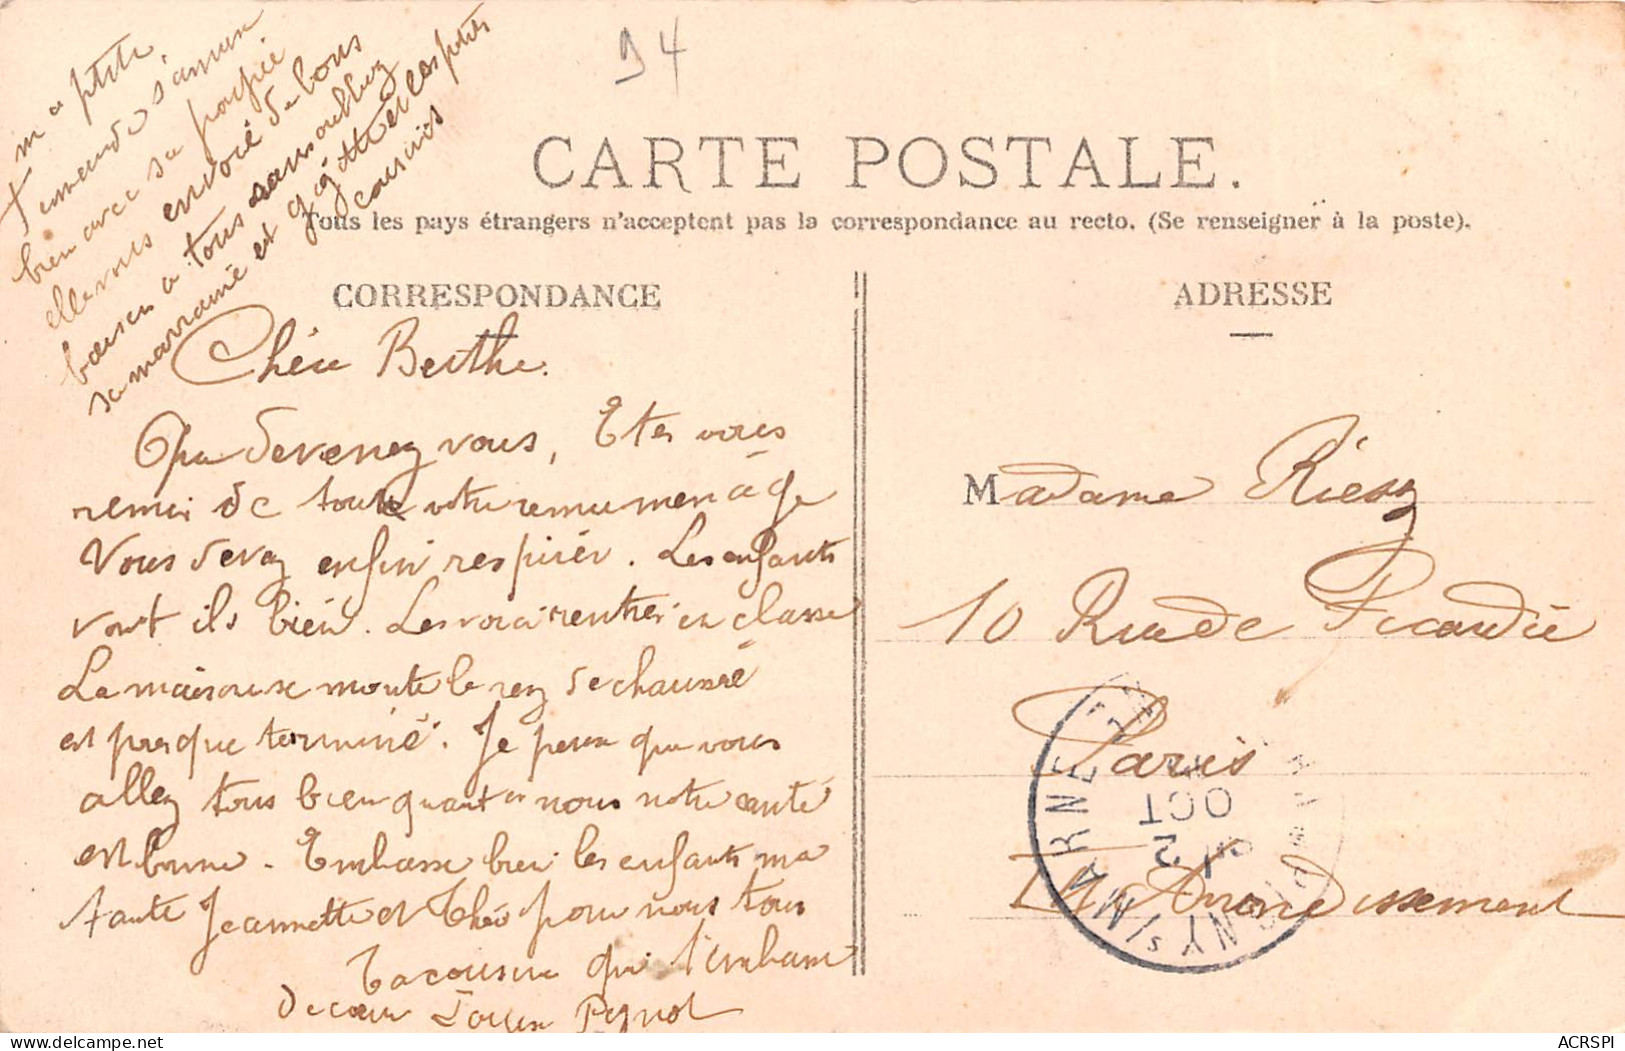 94
ma ptite
Fernande s'amuse
bien avec sa poupée
elle vous envoie de bons
baisers a tous sans oubliez
sa marraine et
cousins
CARTE POSTALE.
Tous les pays étrangers n'acceptent pas la correspondance au recto. (Se renseigner à la poste).
CORRESPONDANCE
ADRESSE
Chère Berthe.
Que devenez vous, Etes vous
remis de toute votre remuménàge
Vous devez enfin respirér. Les enfants
vont ils bién. Les voici rentrés en classe
La maison se monte le rez de chaussré
est presque terminé. Je pense que vous
allez tous bien quant en nous notre santé
est bonne. Embasse bien les enfants ma
tante Jeannette et Théo pour nous tous
Ta cousine qui t'embasse
de cœur Louise Peynot
Madame Riesz
10 Rue de Picardie
Paris
Arrondissement
NY S/MARNE
2
OCT
ACRSPI